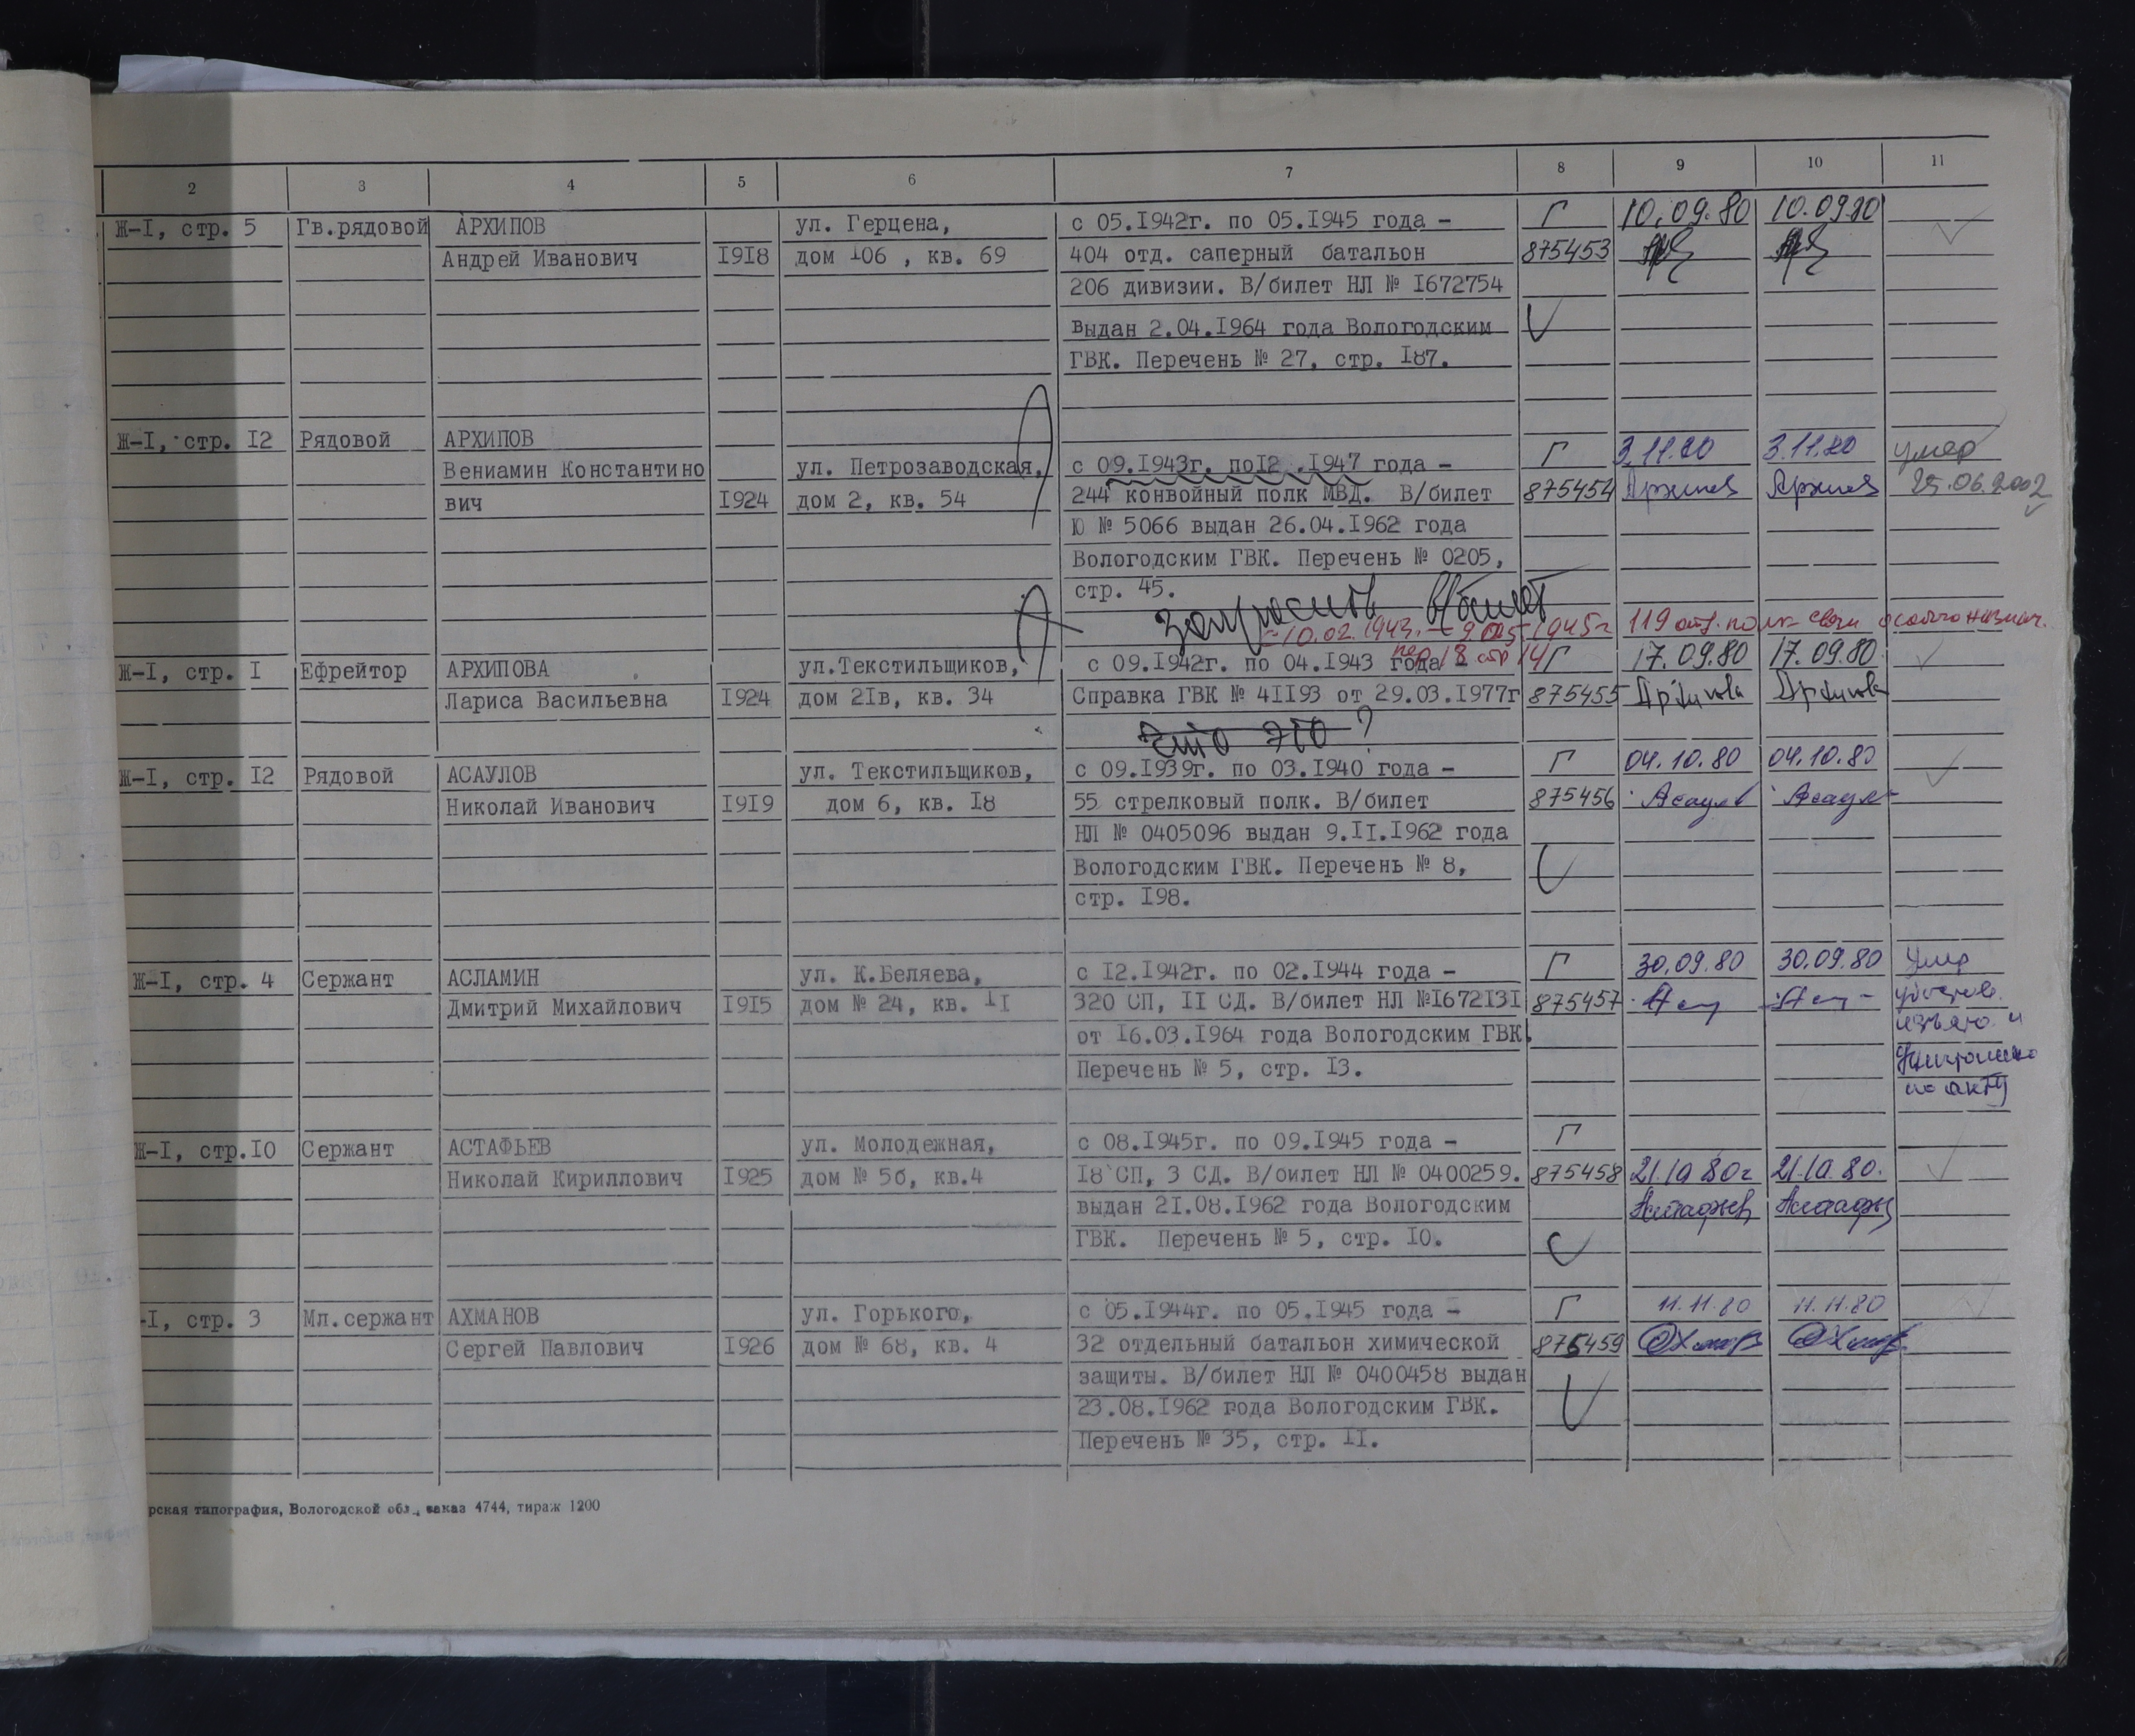 2 3 4 5 6 7 8 9 10 11
Ж-I, стр. 5 Гв.рядовой АРХИПОВ ул. Герцена, с 05.I942г. по 05.I945 года - Г 10.09.80 10.09.80
Андрей Иванович I9I8 дом I06 , кв. 69 404 отд. саперный батальон 875453
206 дивизии. В/билет НЛ № I672754
выдан 2.04.I964 года Вологодским
ГВК. Перечень № 27, стр. I87.
Ж-I, стр. I2 Рядовой АРХИПОВ
Вениамин Константино ул. Петрозаводская, с 09.I943г. поI2 .I947 года - Г 3.11.80 3.11.80 умер
вич I924 дом 2, кв. 54 244 конвойный полк МВД. В/билет 875454 Архипов Архипов 25.06.2002
Ю № 5066 выдан 26.04.I962 года
Вологодским ГВК. Перечень № 0205,
стр. 45.
запросить в/билет
с 10.02.1943г. — 9.05.1945г 119 отд. полк связи особого назнач.
пер 18 стр 14
Ж-I, стр. I Ефрейтор АРХИПОВА ул.Текстильщиков, с 09.I942г. по 04.I943 года - Г 17.09.80 17.09.80
Лариса Васильевна I924 дом 2Iв, кв. 34 Справка ГВК № 4II93 от 29.03.I977г 875455 Архипова Архипова
Что это ?
Ж-I, стр. I2 Рядовой АСАУЛОВ ул. Текстильщиков, с 09.I939г. по 03.I940 года - Г 04.10.80 04.10.80
Николай Иванович I9I9 дом 6, кв. I8 55 стрелковый полк. В/билет 875456 Асаулов Асаулов
НЛ № 0405096 выдан 9.II.I962 года
Вологодским ГВК. Перечень № 8,
стр. I98.
Ж-I, стр. 4 Сержант АСЛАМИН ул. К.Беляева, с I2.I942г. по 02.I944 года - Г 30.09.80 30.09.80 Умер
Дмитрий Михайлович I9I5 дом № 24, кв. II 320 СП, II СД. В/билет НЛ №I672I3I 875457 удостов.
от I6.03.I964 года Вологодским ГВК. изъято и
Перечень № 5, стр. I3. уничтожено
по акту
Ж-I, стр.I0 Сержант АСТАФЬЕВ ул. Молодежная, с 08.I945г. по 09.I945 года - Г
Николай Кириллович I925 дом № 5б, кв.4 I8 СП, 3 СД. В/билет НЛ № 0400259. 875458 21.10 80г 21.10.80.
выдан 2I.08.I962 года Вологодским Астафьев Астафьев
ГВК. Перечень № 5, стр. I0.
-I, стр. 3 Мл.сержант АХМАНОВ ул. Горького, с 05.I944г. по 05.I945 года - Г 11.11.80 11.11.80
Сергей Павлович I926 дом № 68, кв. 4 32 отдельный батальон химической 875459
защиты. В/билет НЛ № 0400458 выдан
23.08.I962 года Вологодским ГВК.
Перечень № 35, стр. II.
рская типография, Вологодской обл., заказ 4744, тираж 1200